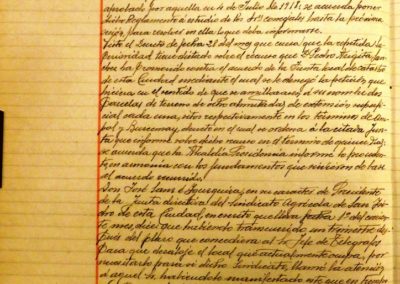 aprobado por aquella en 4 de Julio de 1918, se acuerda poner
dicho Reglamento a estudio de los Srs. concejales hasta la próxima
sesión, para resolver en ella lo que deba informarse.
Visto el Decreto de fecha 28 del mes que cursa que la repetida
Superioridad tiene dictado sobre el recurso que D. Pedro
ha promovido contra el acuerdo de la Junta pericial de catastro
de esta Ciudad mediante el cual se le denegó la petición que
hiciera en el sentido de que se amillarasen a su nombre dos
parcelas de terreno de ocho almudadas de extensión superfi-
cial cada una, sitos respectivamente en los términos de
y decreto en el cual se ordena a la citada Jun-
ta que informe sobre dicho recurso en el término de quince días,
se acuerda que la Alcaldía Presidencia informe lo proceden-
te en armonía con los fundamentos que sirvieron de base
al acuerdo recurrido.
Don José Sans é en su carácter de Presidente
de la Junta directiva del Sindicato Agrícola de San Isi-
dro de esta Ciudad, en escrito que lleva fecha 1º del corrien-
te mes, dice que habiendo transcurrido un trimestre des-
pués del plazo que concediera al Sr. Jefe de Telégrafos
para que desaloje el local que actualmente ocupa, por
necesitarlo para sí dicho Sindicato, llamó la atención
a aquel Sr. habiéndole manifestado este que en tiempo